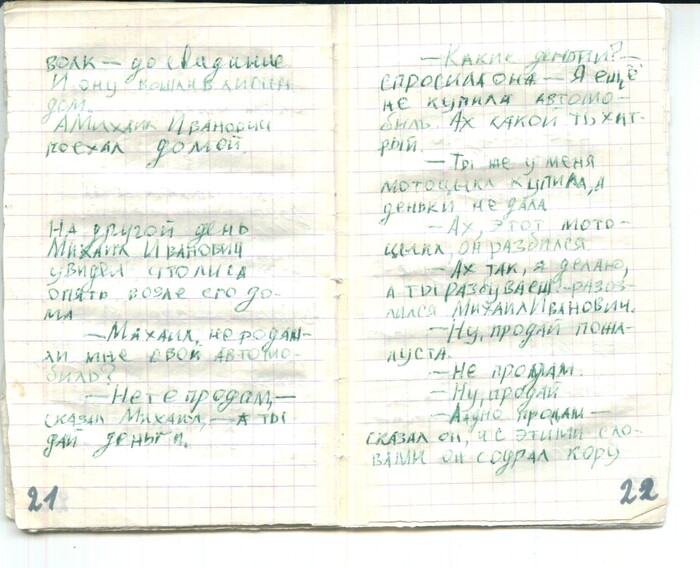 волк — до свидание
И ону вошли в лисин
дом.
А Михаил Иванович
поехал домой.
На другой день
Михаил Иванович
увидел что лиса
опять возле его до-
ма
— Михаил, не родаж-
ли мне свой автомо-
биль?
— Нет е продам, —
сказал Михаил, — а ты
дай деньги.
21
— Какие деньги? —
спросила она — Я ещё
не купила автомо-
биль. Ах какой ты хит-
рый.
— Ты же у меня
мотоцыкл купила, а
деньки не дала
— Ах, этот мото-
цыкл он разбился
— Ах так, я делаю,
а ты разбуваеш — разоз-
лился Михаил Иванович.
— Ну, продай пожа-
луста.
— Не продам.
— Ну, продай
— Ладно продам —
сказал он, и с этими сло-
вами он содрал кору
22